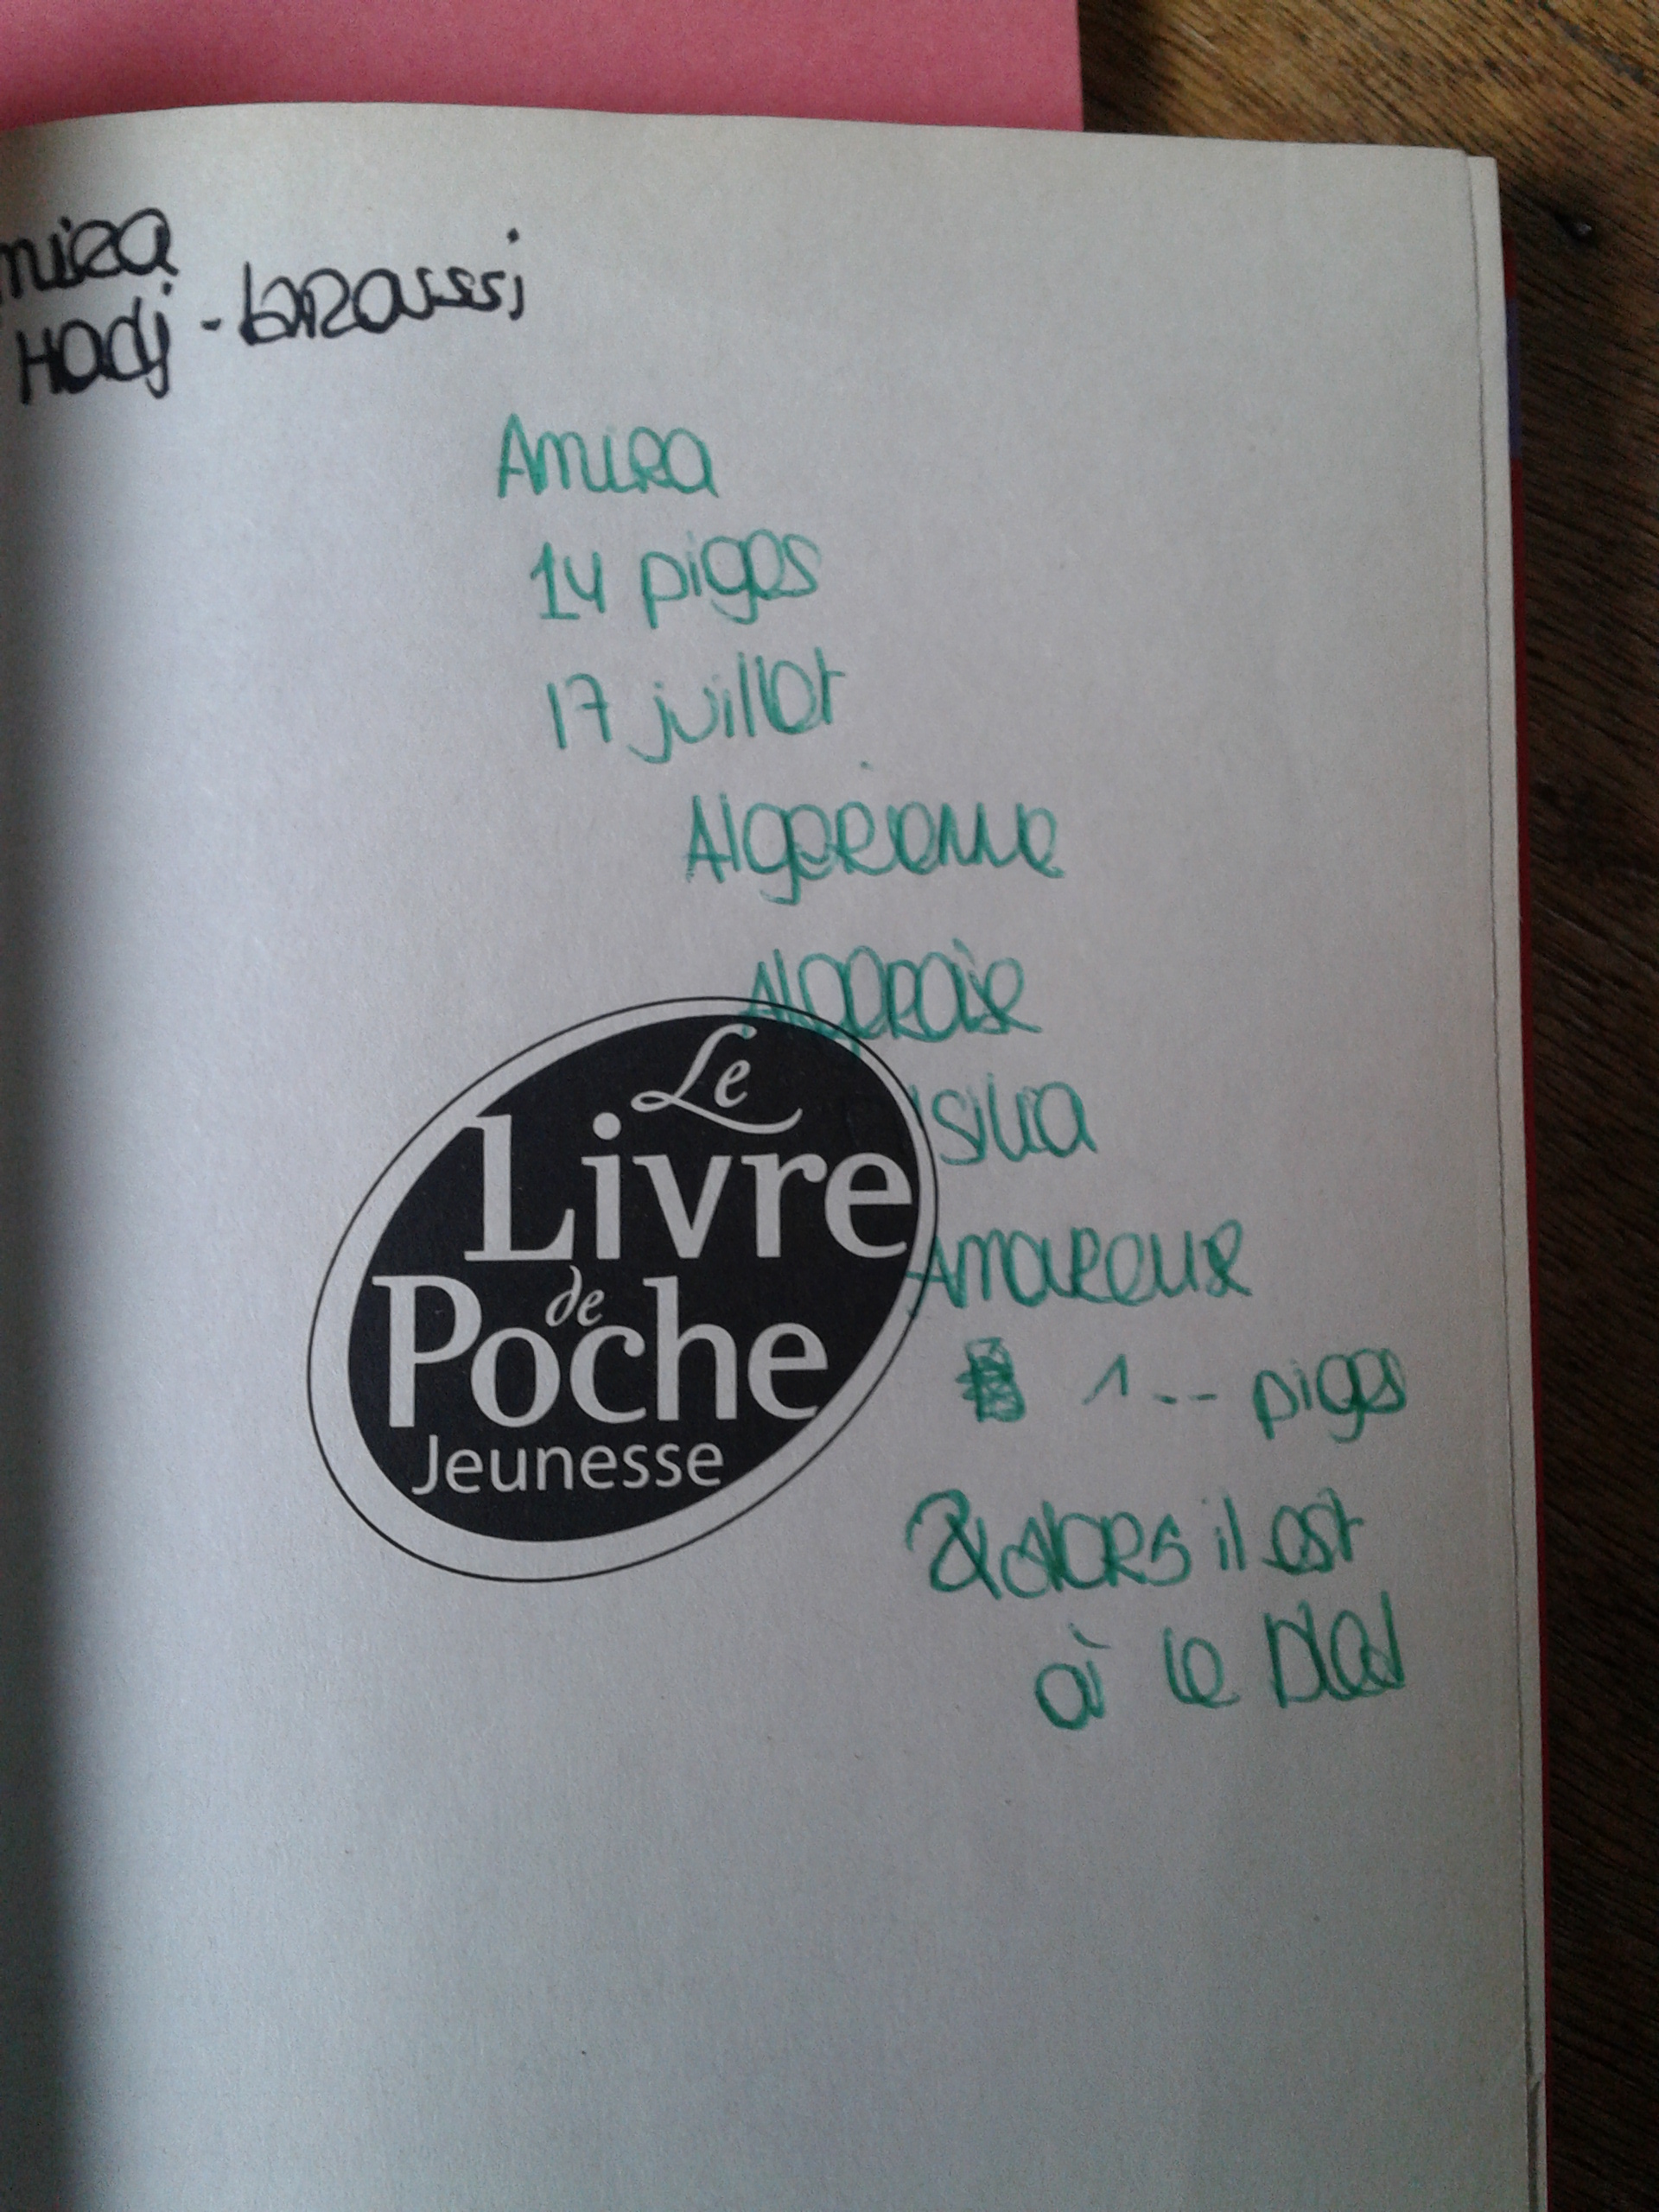 Amira
Hadj-Laraussi
Amira
14 piges
17 juillet
Algerienne
Algeroise
Amoureuse
1-- piges
& alors il est
à le Bled
Le
Livre
de
Poche
Jeunesse